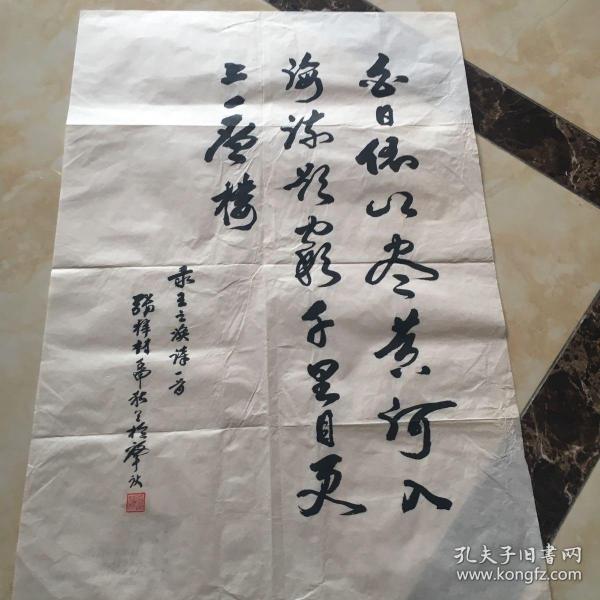 白日依山尽黄河入
海流欲穷千里目更
上一层楼
录王之涣诗一首
孔夫子旧书网
www.kongfz.com